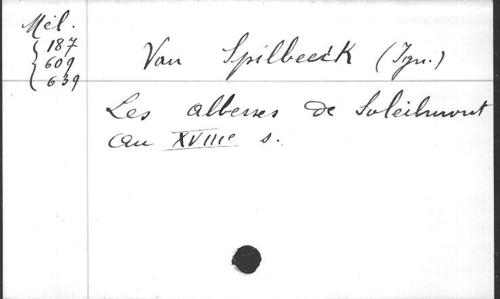 Mél.
187
609
639
Van Spilbeeck (Ign.)
Les abbesses de Soleilmont
au XVIIIe s.